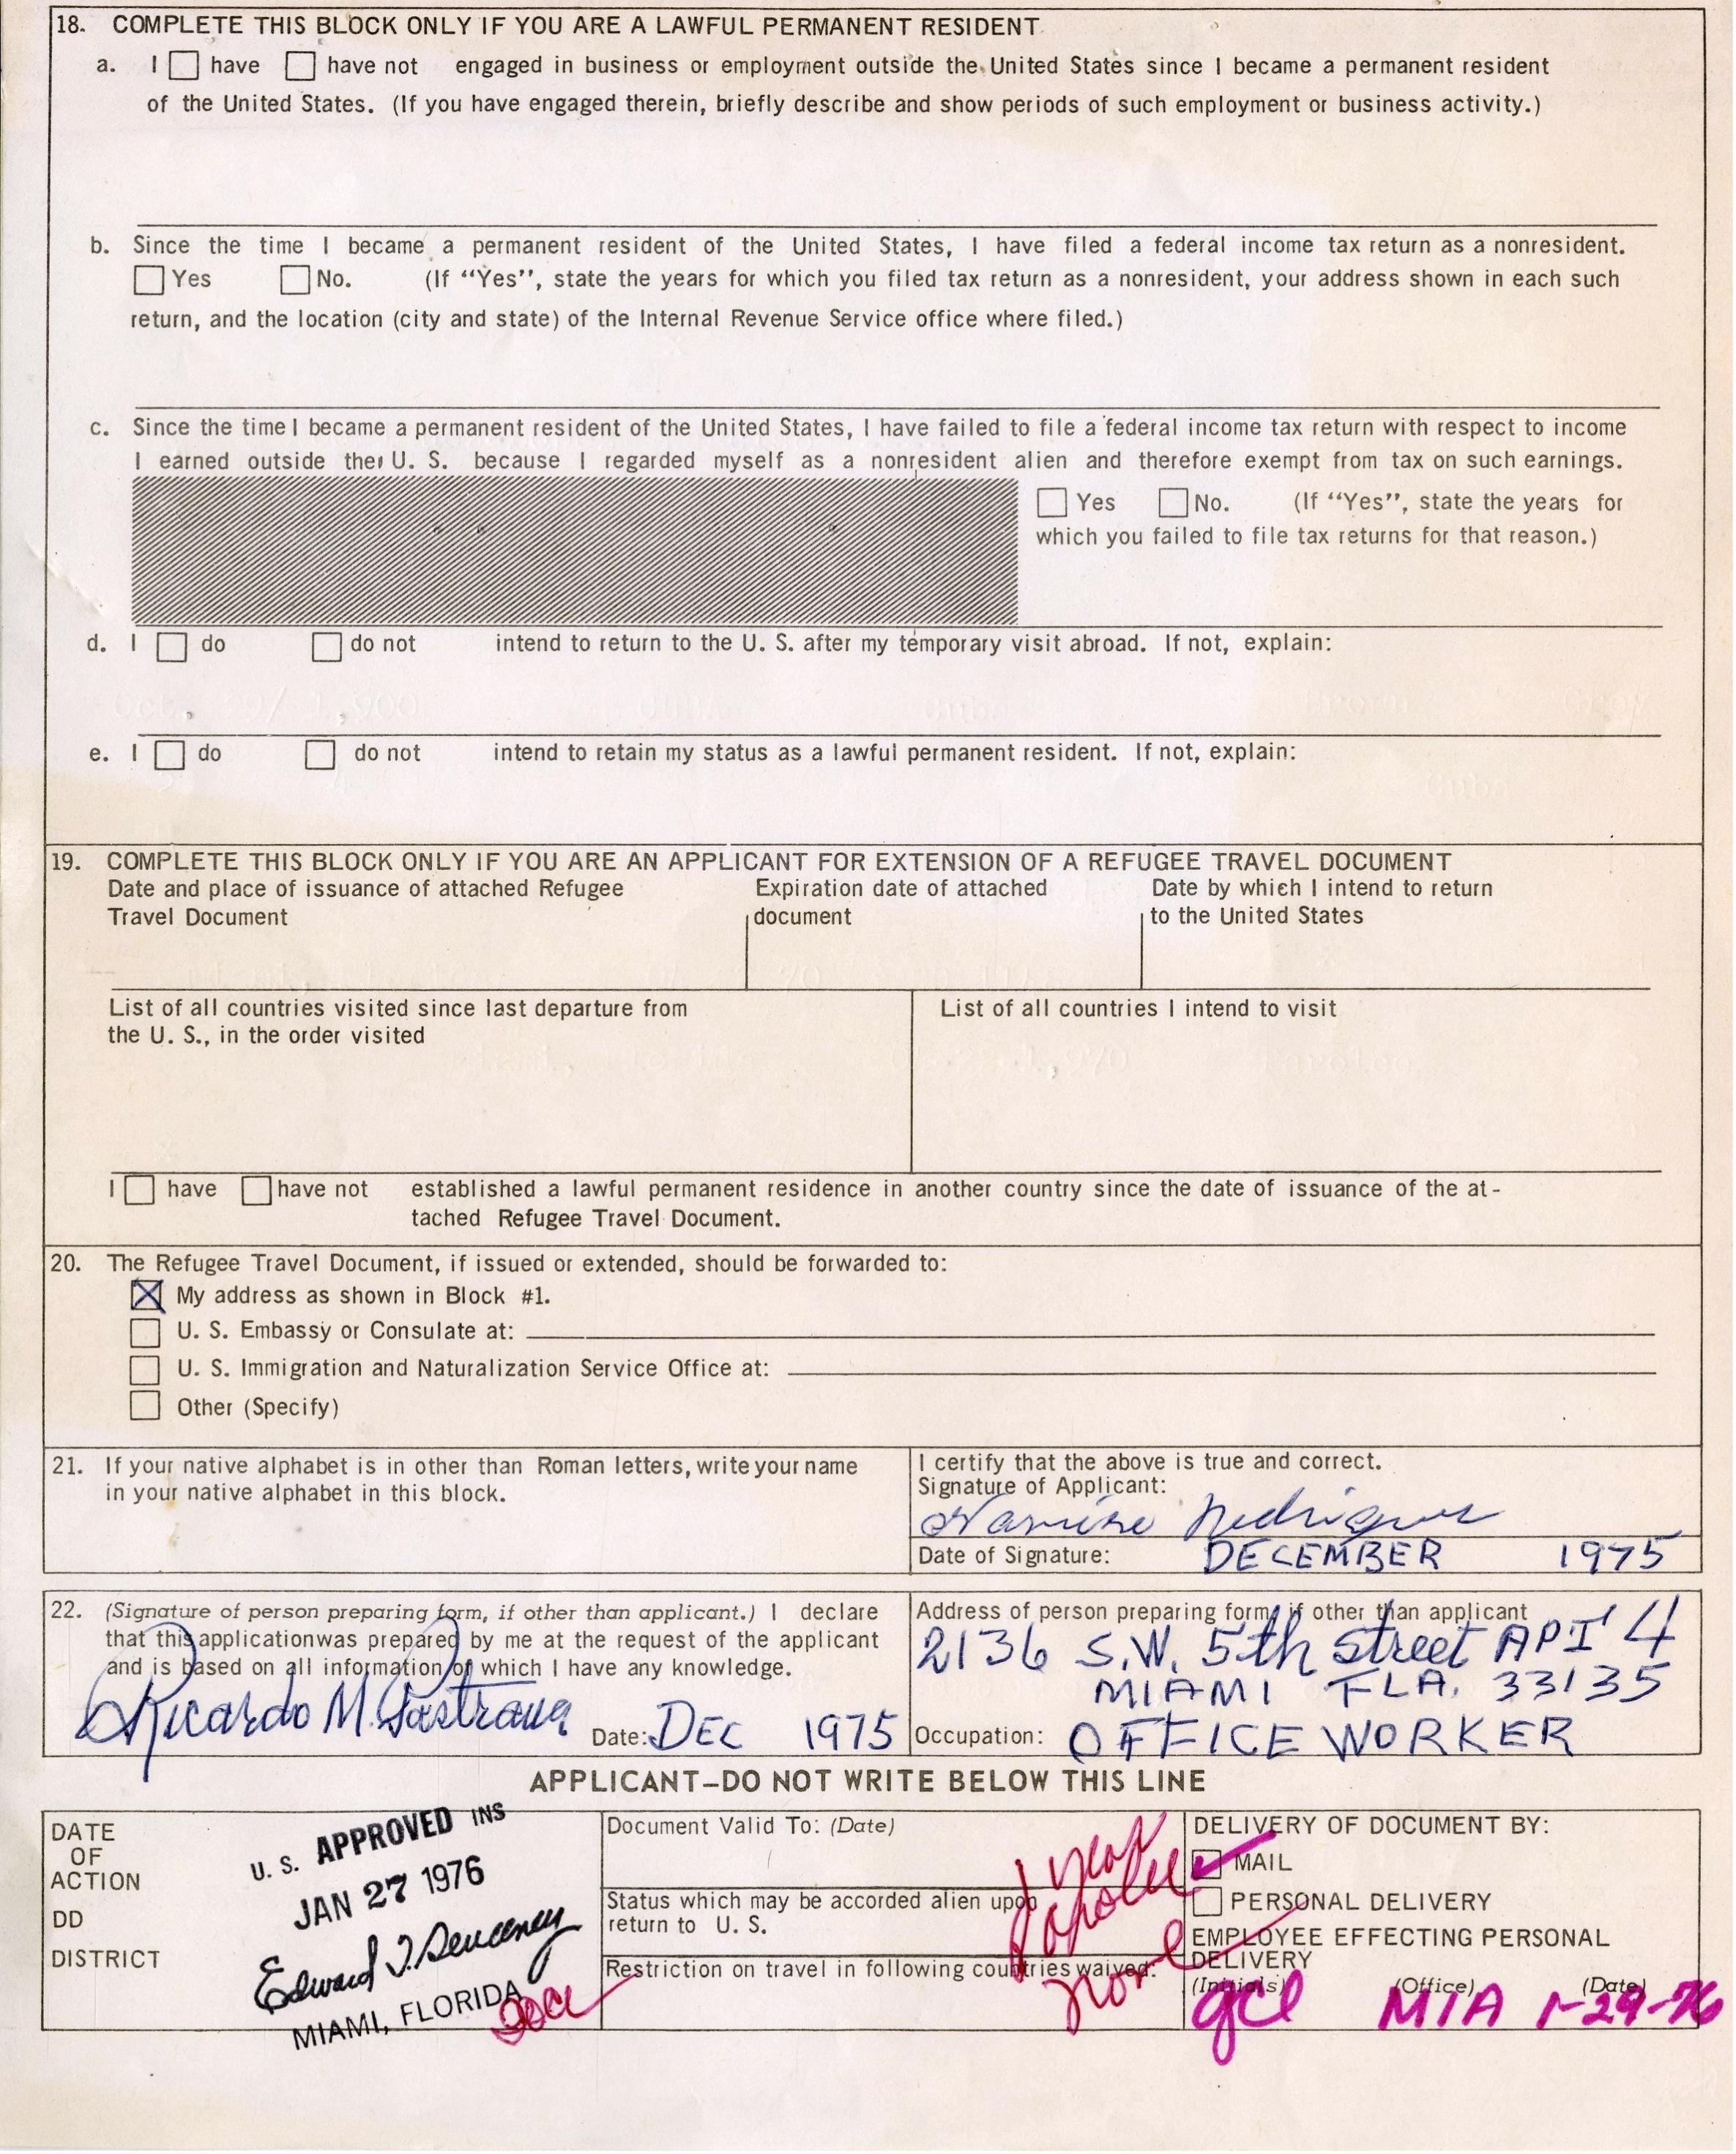 18. COMPLETE THIS BLOCK ONLY IF YOU ARE A LAWFUL PERMANENT RESIDENT
a. I have have not engaged in business or employment outside the United States since I became a permanent resident
of the United States. (If you have engaged therein, briefly describe and show periods of such employment or business activity.)
b. Since the time I became a permanent resident of the United States, I have filed a federal income tax return as a nonresident.
Yes No. (If “Yes”, state the years for which you filed tax return as a nonresident, your address shown in each such
return, and the location (city and state) of the Internal Revenue Service office where filed.)
c. Since the time I became a permanent resident of the United States, I have failed to file a federal income tax return with respect to income
I earned outside the U. S. because I regarded myself as a nonresident alien and therefore exempt from tax on such earnings.
Yes No. (If “Yes”, state the years for
which you failed to file tax returns for that reason.)
d. I do do not intend to return to the U. S. after my temporary visit abroad. If not, explain:
e. I do do not intend to retain my status as a lawful permanent resident. If not, explain:
19. COMPLETE THIS BLOCK ONLY IF YOU ARE AN APPLICANT FOR EXTENSION OF A REFUGEE TRAVEL DOCUMENT
Date and place of issuance of attached Refugee
Travel Document
Expiration date of attached
document
Date by which I intend to return
to the United States
List of all countries visited since last departure from
the U. S., in the order visited
List of all countries I intend to visit
I have have not established a lawful permanent residence in another country since the date of issuance of the at-
tached Refugee Travel Document.
20. The Refugee Travel Document, if issued or extended, should be forwarded to:
X My address as shown in Block #1.
U. S. Embassy or Consulate at:
U. S. Immigration and Naturalization Service Office at:
Other (Specify)
21. If your native alphabet is in other than Roman letters, write your name
in your native alphabet in this block.
I certify that the above is true and correct.
Signature of Applicant:
Rodriguez
Date of Signature: DECEMBER 1975
22. (Signature of person preparing form, if other than applicant.) I declare
that this application was prepared by me at the request of the applicant
and is based on all information of which I have any knowledge.
Ricardo M. Pastrana Date: DEC 1975
Address of person preparing form, if other than applicant
2136 S.W. 5th Street APT 4
MIAMI FLA. 33135
Occupation: OFFICE WORKER
APPLICANT—DO NOT WRITE BELOW THIS LINE
DATE
OF
ACTION
DD
DISTRICT
U. S. APPROVED INS
JAN 27 1976
Edward J. Sweeney
MIAMI, FLORIDA
Document Valid To: (Date)
1 year
Status which may be accorded alien upon
return to U. S.
parolee
Restriction on travel in following countries waived:
none
DELIVERY OF DOCUMENT BY:
MAIL
PERSONAL DELIVERY
EMPLOYEE EFFECTING PERSONAL
DELIVERY
(Initials) (Office) (Date)
gcl MIA 1-29-76